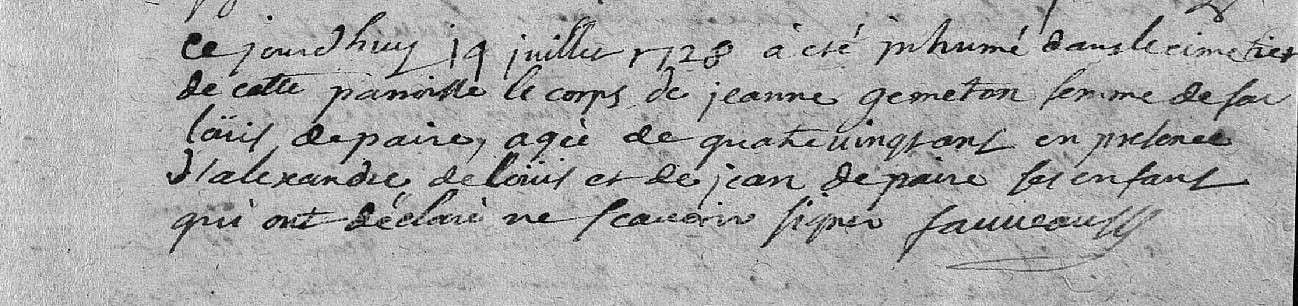 ce jourdhuy 19 juillet 1728 à eté inhumé dans le cimetier
de cette parroisse le corps de jeanne gemeton femme de feu
loüis depaire, agée de quatrevingt ans en presence
d'alexandre de loüis et de jean depaire ses enfans
qui ont déclaré ne scavoir signer